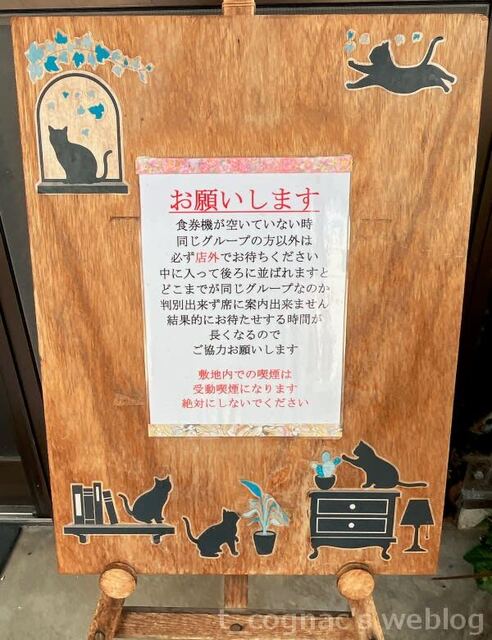 お願いします
食券機が空いていない時
同じグループの方以外は
必ず店外でお待ちください
中に入って後ろに並ばれますと
どこまでが同じグループなのか
判別出来ず席に案内出来ません
結果的にお待たせする時間が
長くなるので
ご協力お願いします
敷地内での喫煙は
受動喫煙になります
絶対にしないでください
t_cognac's weblog